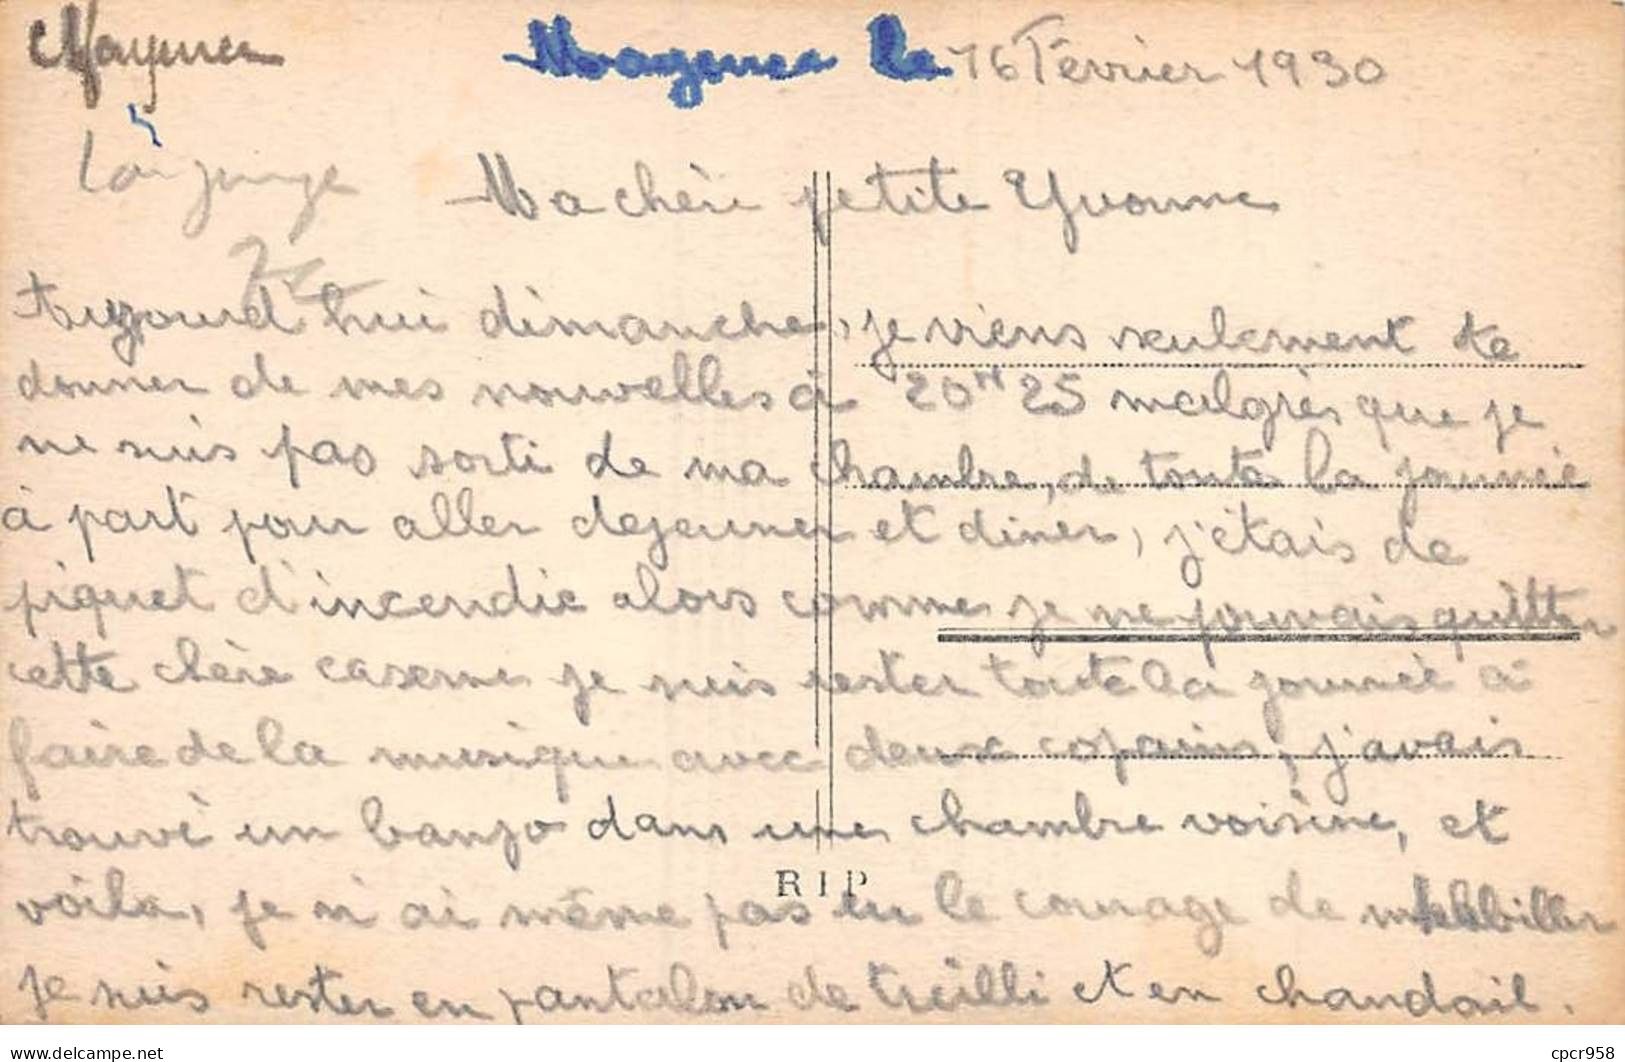 Mayence
Mayence le 16 Février 1930
Ma chéri petite Yvonne
Aujourd'hui dimanche, je viens seulement te
donner de mes nouvelles à 20H25 malgrès que je
ne suis pas sorti de ma chambre, de toute la journée
à part pour aller dejeuner et diner, j'étais de
piquet d'incendie alors comme je ne pouvais quitter
cette chère caserne je suis rester toute la journée à
faire de la musique avec deux copains, j'avais
trouvé un banjo dans une chambre voisine, et
voila, je n'ai même pas eu le courage de
RIP
je suis rester en pantalon de treilli et en chandail.
cpcr958